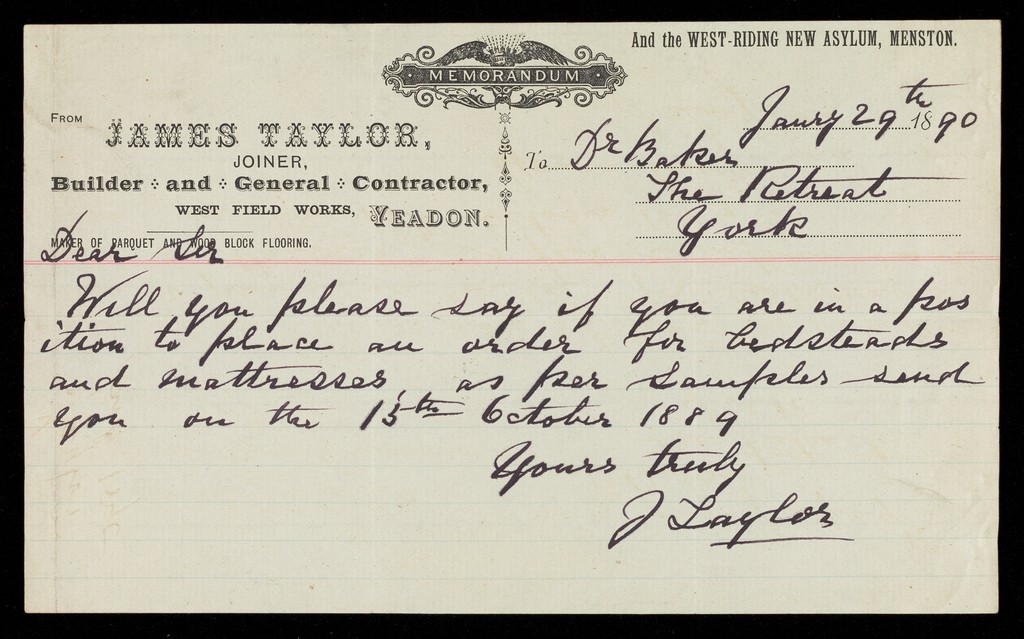 And the WEST-RIDING NEW ASYLUM, MENSTON.
MEMORANDUM
FROM
JAMES TAYLOR,
JOINER,
Builder and General Contractor,
WEST FIELD WORKS, YEADON.
MAKER OF PARQUET AND WOOD BLOCK FLOORING.
Janry 29th 1890
To Dr Baker
The Retreat
York
Dear Sir
Will you please say if you are in a pos
ition to place an order for bedsteads
and mattresses, as per samples send
you on the 15th October 1889
Yours truly
J Taylor